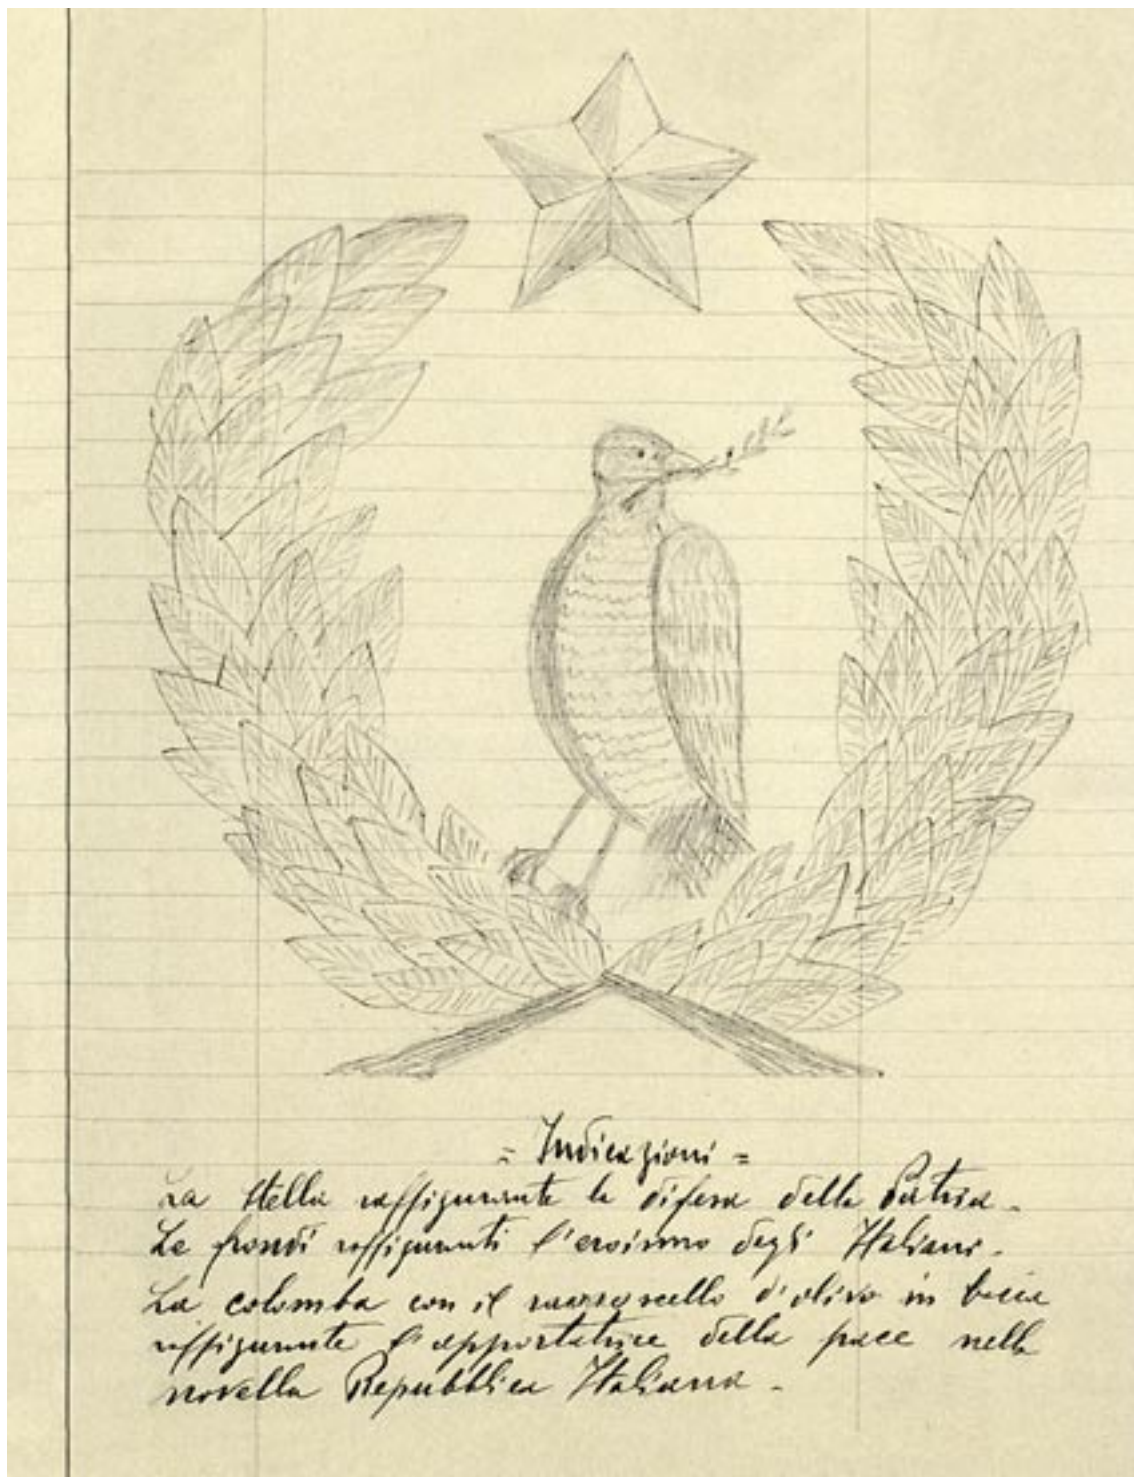 = Indicazioni =
La stella raffigurante la difesa della Patria.
Le frondi raffiguranti l'eroismo degli Italiani.
La colomba con il ramoscello d'olivo in bocca
raffigurante l'apportatrice della pace nella
novella Repubblica Italiana.